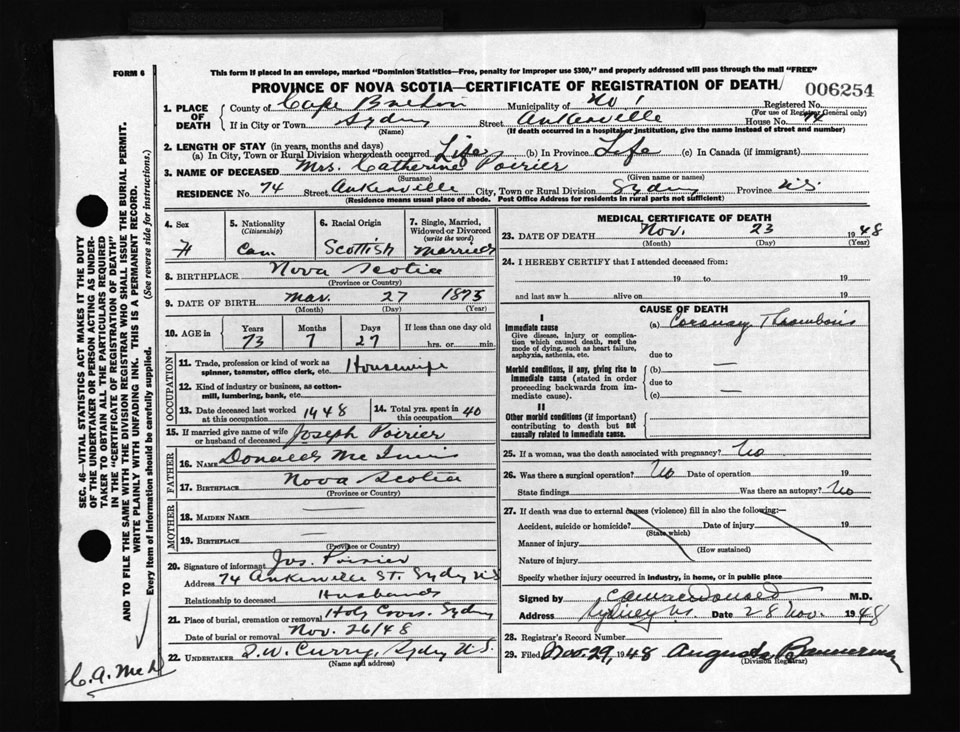 FORM 6
This form if placed in an envelope, marked "Dominion Statistics—Free, penalty for improper use $300," and properly addressed will pass through the mail "FREE"
PROVINCE OF NOVA SCOTIA—CERTIFICATE OF REGISTRATION OF DEATH
006254
1. PLACE OF DEATH
County of Cape Breton Municipality of No 1 Registered No.
(For use of Registrar General only)
If in City or Town Sydney Street Ankerville House No. 74
(Name) (If death occurred in a hospital or institution, give the name instead of street and number)
2. LENGTH OF STAY (in years, months and days)
(a) In City, Town or Rural Division where death occurred Life (b) In Province Life (c) In Canada (if immigrant)
3. NAME OF DECEASED Mrs. Catherine Poirier
(Surname) (Given name or names)
RESIDENCE No. 74 Street Ankerville City, Town or Rural Division Sydney Province N.S.
(Residence means usual place of abode. Post Office Address for residents in rural parts not sufficient)
4. Sex
F
5. Nationality
(Citizenship)
Can.
6. Racial Origin
Scottish
7. Single, Married, Widowed or Divorced
(write the word)
Married
8. BIRTHPLACE Nova Scotia
(Province or Country)
9. DATE OF BIRTH Mar. 27 1875
(Month) (Day) (Year)
10. AGE in
Years Months Days If less than one day old
73 7 27 hrs. or min.
OCCUPATION
11. Trade, profession or kind of work as
spinner, teamster, office clerk, etc. Housewife
12. Kind of industry or business, as cotton-
mill, lumbering, bank, etc.
13. Date deceased last worked
at this occupation 1948
14. Total yrs. spent in
this occupation 40
15. If married give name of wife
or husband of deceased Joseph Poirier
FATHER
16. NAME Donald Mc Innis
17. BIRTHPLACE Nova Scotia
(Province or Country)
MOTHER
18. MAIDEN NAME —
19. BIRTHPLACE —
(Province or Country)
20. Signature of informant Jos. Poirier
Address 74 Ankerville St. Sydney N.S.
Relationship to deceased Husband
21. Place of burial, cremation or removal Holy Cross, Sydney
Date of burial or removal Nov. 26/48
22. UNDERTAKER Curry, Sydney N.S.
(Name and address)
MEDICAL CERTIFICATE OF DEATH
23. DATE OF DEATH Nov. 23 1948
(Month) (Day) (Year)
24. I HEREBY CERTIFY that I attended deceased from:
19 to 19
and last saw h alive on 19
CAUSE OF DEATH
I
Immediate cause
Give disease, injury or complica-
tion which caused death, not the
mode of dying, such as heart failure,
asphyxia, asthenia, etc.
(a) Coronary Thrombosis
due to
Morbid conditions, if any, giving rise to
immediate cause (stated in order
proceeding backwards from im-
mediate cause).
(b) —
due to
(c) —
II
Other morbid conditions (if important)
contributing to death but not
causally related to immediate cause.
25. If a woman, was the death associated with pregnancy? No
26. Was there a surgical operation? No Date of operation 19
State findings Was there an autopsy? No
27. If death was due to external causes (violence) fill in also the following:—
Accident, suicide or homicide? Date of injury 19
(State which)
Manner of injury
(How sustained)
Nature of injury
Specify whether injury occurred in industry, in home, or in public place
Signed by M.D.
Address Sydney N.S. Date 28 Nov. 1948
28. Registrar's Record Number
29. Filed Nov. 29, 1948 Augusta Bannerman
(Division Registrar)
SEC. 46—VITAL STATISTICS ACT MAKES IT THE DUTY
OF THE UNDERTAKER OR PERSON ACTING AS UNDER-
TAKER TO OBTAIN ALL THE PARTICULARS REQUIRED
IN THE "CERTIFICATE OF REGISTRATION OF DEATH"
AND TO FILE THE SAME WITH THE DIVISION REGISTRAR WHO SHALL ISSUE THE BURIAL PERMIT.
WRITE PLAINLY WITH UNFADING INK. THIS IS A PERMANENT RECORD.
Every Item of Information should be carefully supplied. (See reverse side for instructions.)
C.A. McD